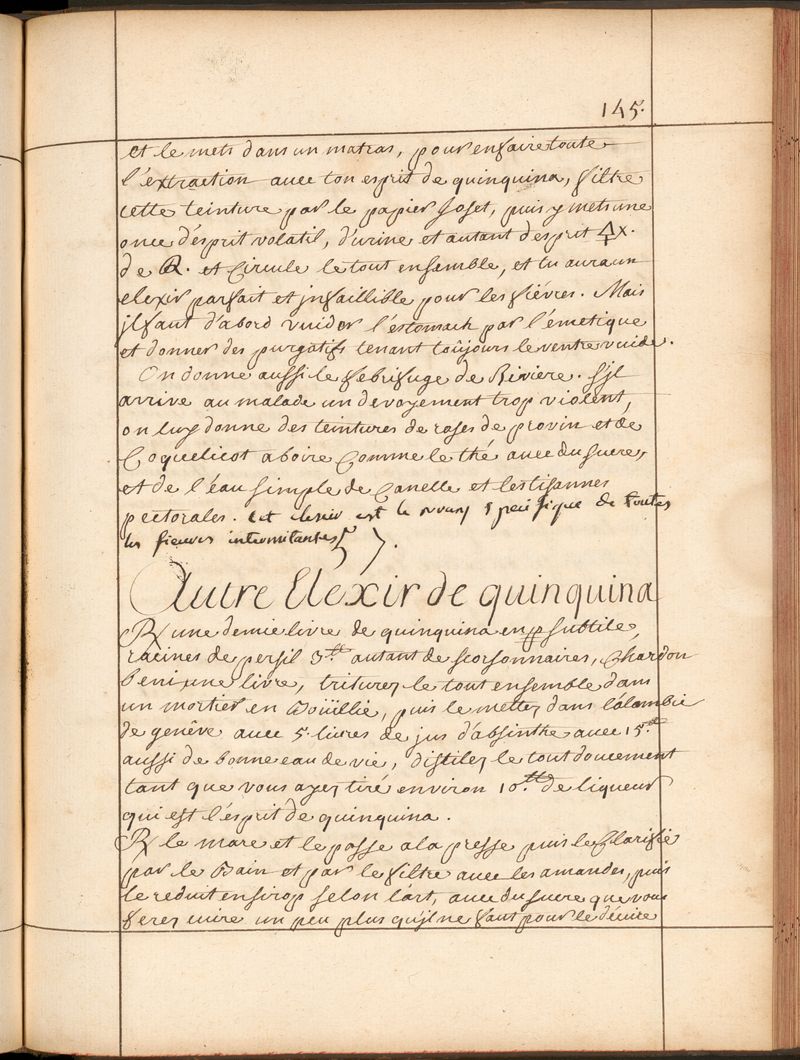 145.
et le mets dans un matras, pour en faire toute
l'extraction avec ton esprit de quinquina, filtre
cette teinture par le papier Joset, puis y mets une
once d'esprit volatil, d'urine et autant d'esprit 🜍x.
de et Circule le tout ensemble, et tu auras un
elexir parfait et jnfaillible pour les fiévres. Mais
jl faut d'abord vuider l'estomach par l'émetique
et donner des purgatifs tenant toûjours le ventre vuide.
On donne aussi le febrifuge de Riviere. S'jl
arrive au malade un devoyement trop violent,
on luy donne des teintures de roses de provin et de
Coquelicot a boire Comme le thé avec du sucre,
et de l'eau simple de Canelle et les tisannes
pectorales. cet elexir est le vray specifique de toutes
les fieures intermitantes.
Autre Elexir de quinquina
℞ une demie livre de quinquina en subtile,
racines de persil 3.tt autant de scorsonnaires, Chardon
benit une livre, triturez le tout ensemble dans
un mortier en Boüillie, puis le mettez dans l'alambic
de genêve avec 5. livres de jus d'absinthe avec 15.tt
aussi de bonne eau de vie, distilez le tout doucement
tant que vous ayez tiré environ 10.tt de liqueur
qui est l'esprit de quinquina.
℞ le marc et le passe a la presse puis le Clarifie
par le Bain et par le filtre avec les amandes, puis
le reduit en sirop selon l'art, avec du sucre que vous
ferez cuire un peu plus qu'jl ne faut pour le décuire